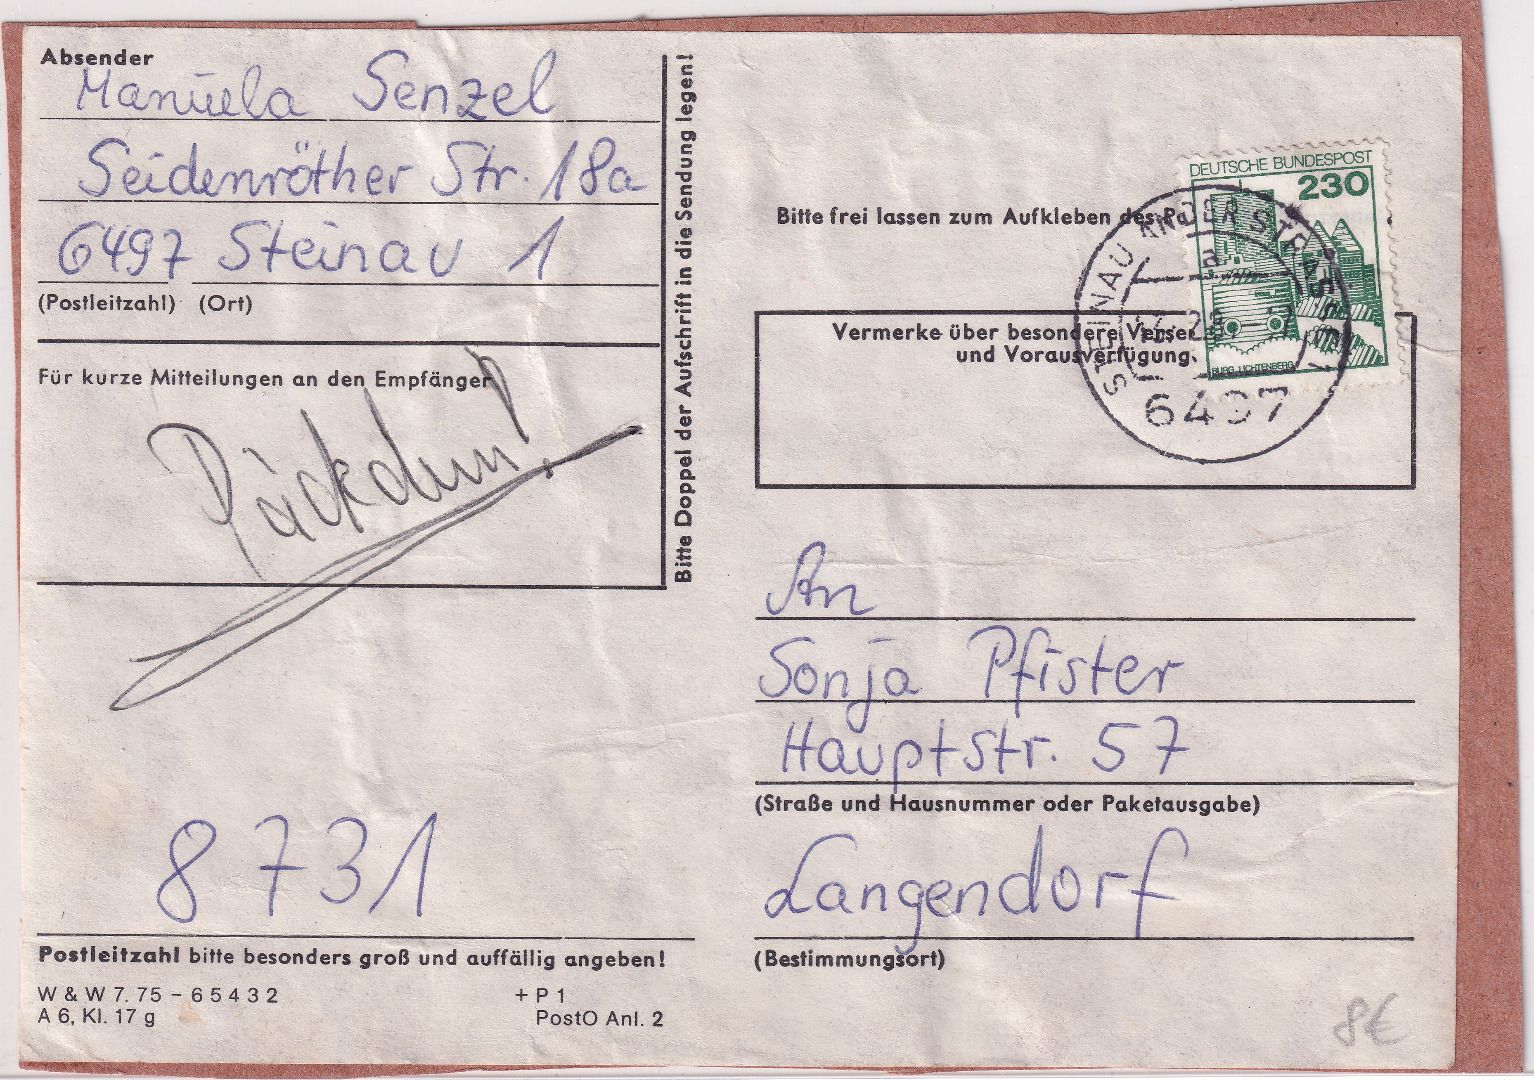 Absender
Manuela Senzel
Seidenröther Str. 18a
6497 Steinau 1
(Postleitzahl) (Ort)
Für kurze Mitteilungen an den Empfänger
Päckchen!
Bitte Doppel der Aufschrift in die Sendung legen!
DEUTSCHE BUNDESPOST
230
BURG LICHTENBERG
Bitte frei lassen zum Aufkleben des
STEINAU AN DER STRASSE 1
a
6497
Vermerke über besondere
und Vorausverfügung
An
Sonja Pfister
Hauptstr. 57
(Straße und Hausnummer oder Paketausgabe)
8731
Langendorf
Postleitzahl bitte besonders groß und auffällig angeben!
(Bestimmungsort)
W & W 7. 75 – 6 5 4 3 2
+ P 1
A 6, Kl. 17 g
PostO Anl. 2
8€